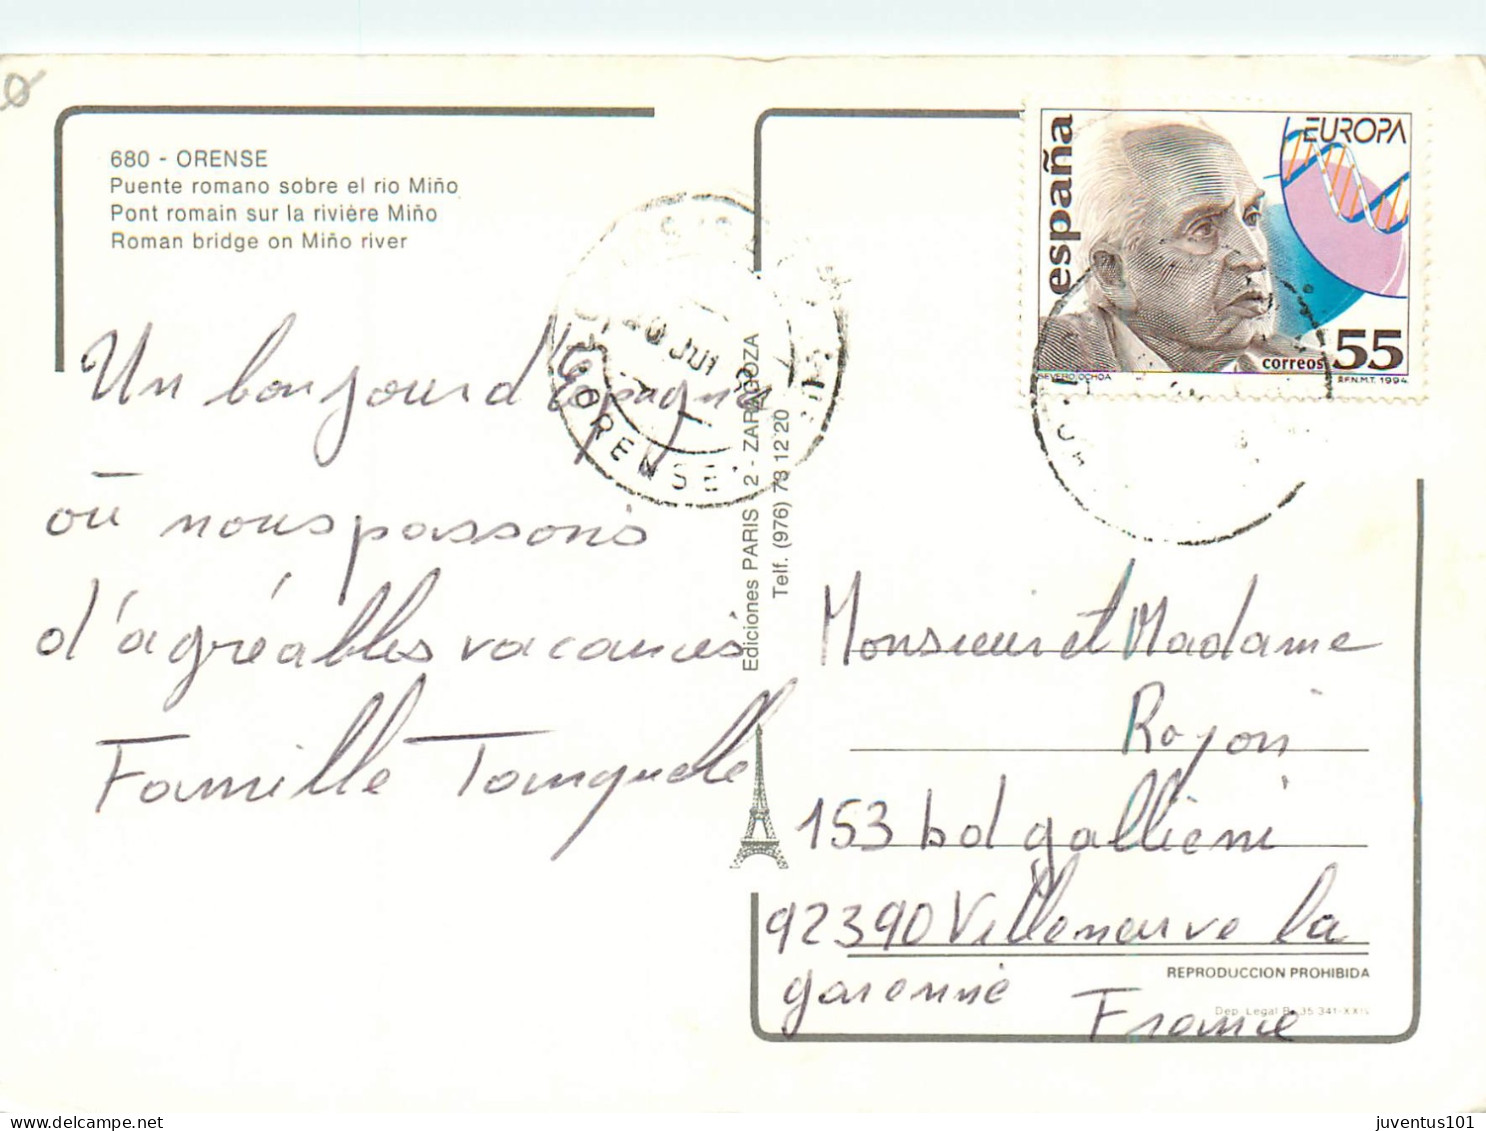 680 - ORENSE
Puente romano sobre el rio Miño
Pont romain sur la rivière Miño
Roman bridge on Miño river
Un bonjour d'Espagne
où nous passons
d'agréables vacances
Famille
Ediciones PARIS 2 - ZARAGOZA
Telf. (976) 73 12 20
ORENSE
españa
EUROPA
correos 55
SEVERO OCHOA
F.N.M.T. 1994
Monsieur et Madame
Royon
153 bd galliéni
92390 Villeneuve la
garenne
France
REPRODUCCION PROHIBIDA
Dep. Legal B. 35.341-XXIV
juventus101